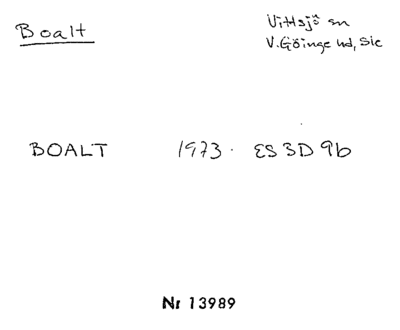 Boalt
Vittsjö sn
V. Göinge hd, Sk
BOALT 1973. ES 3D 9b
Nr 13989